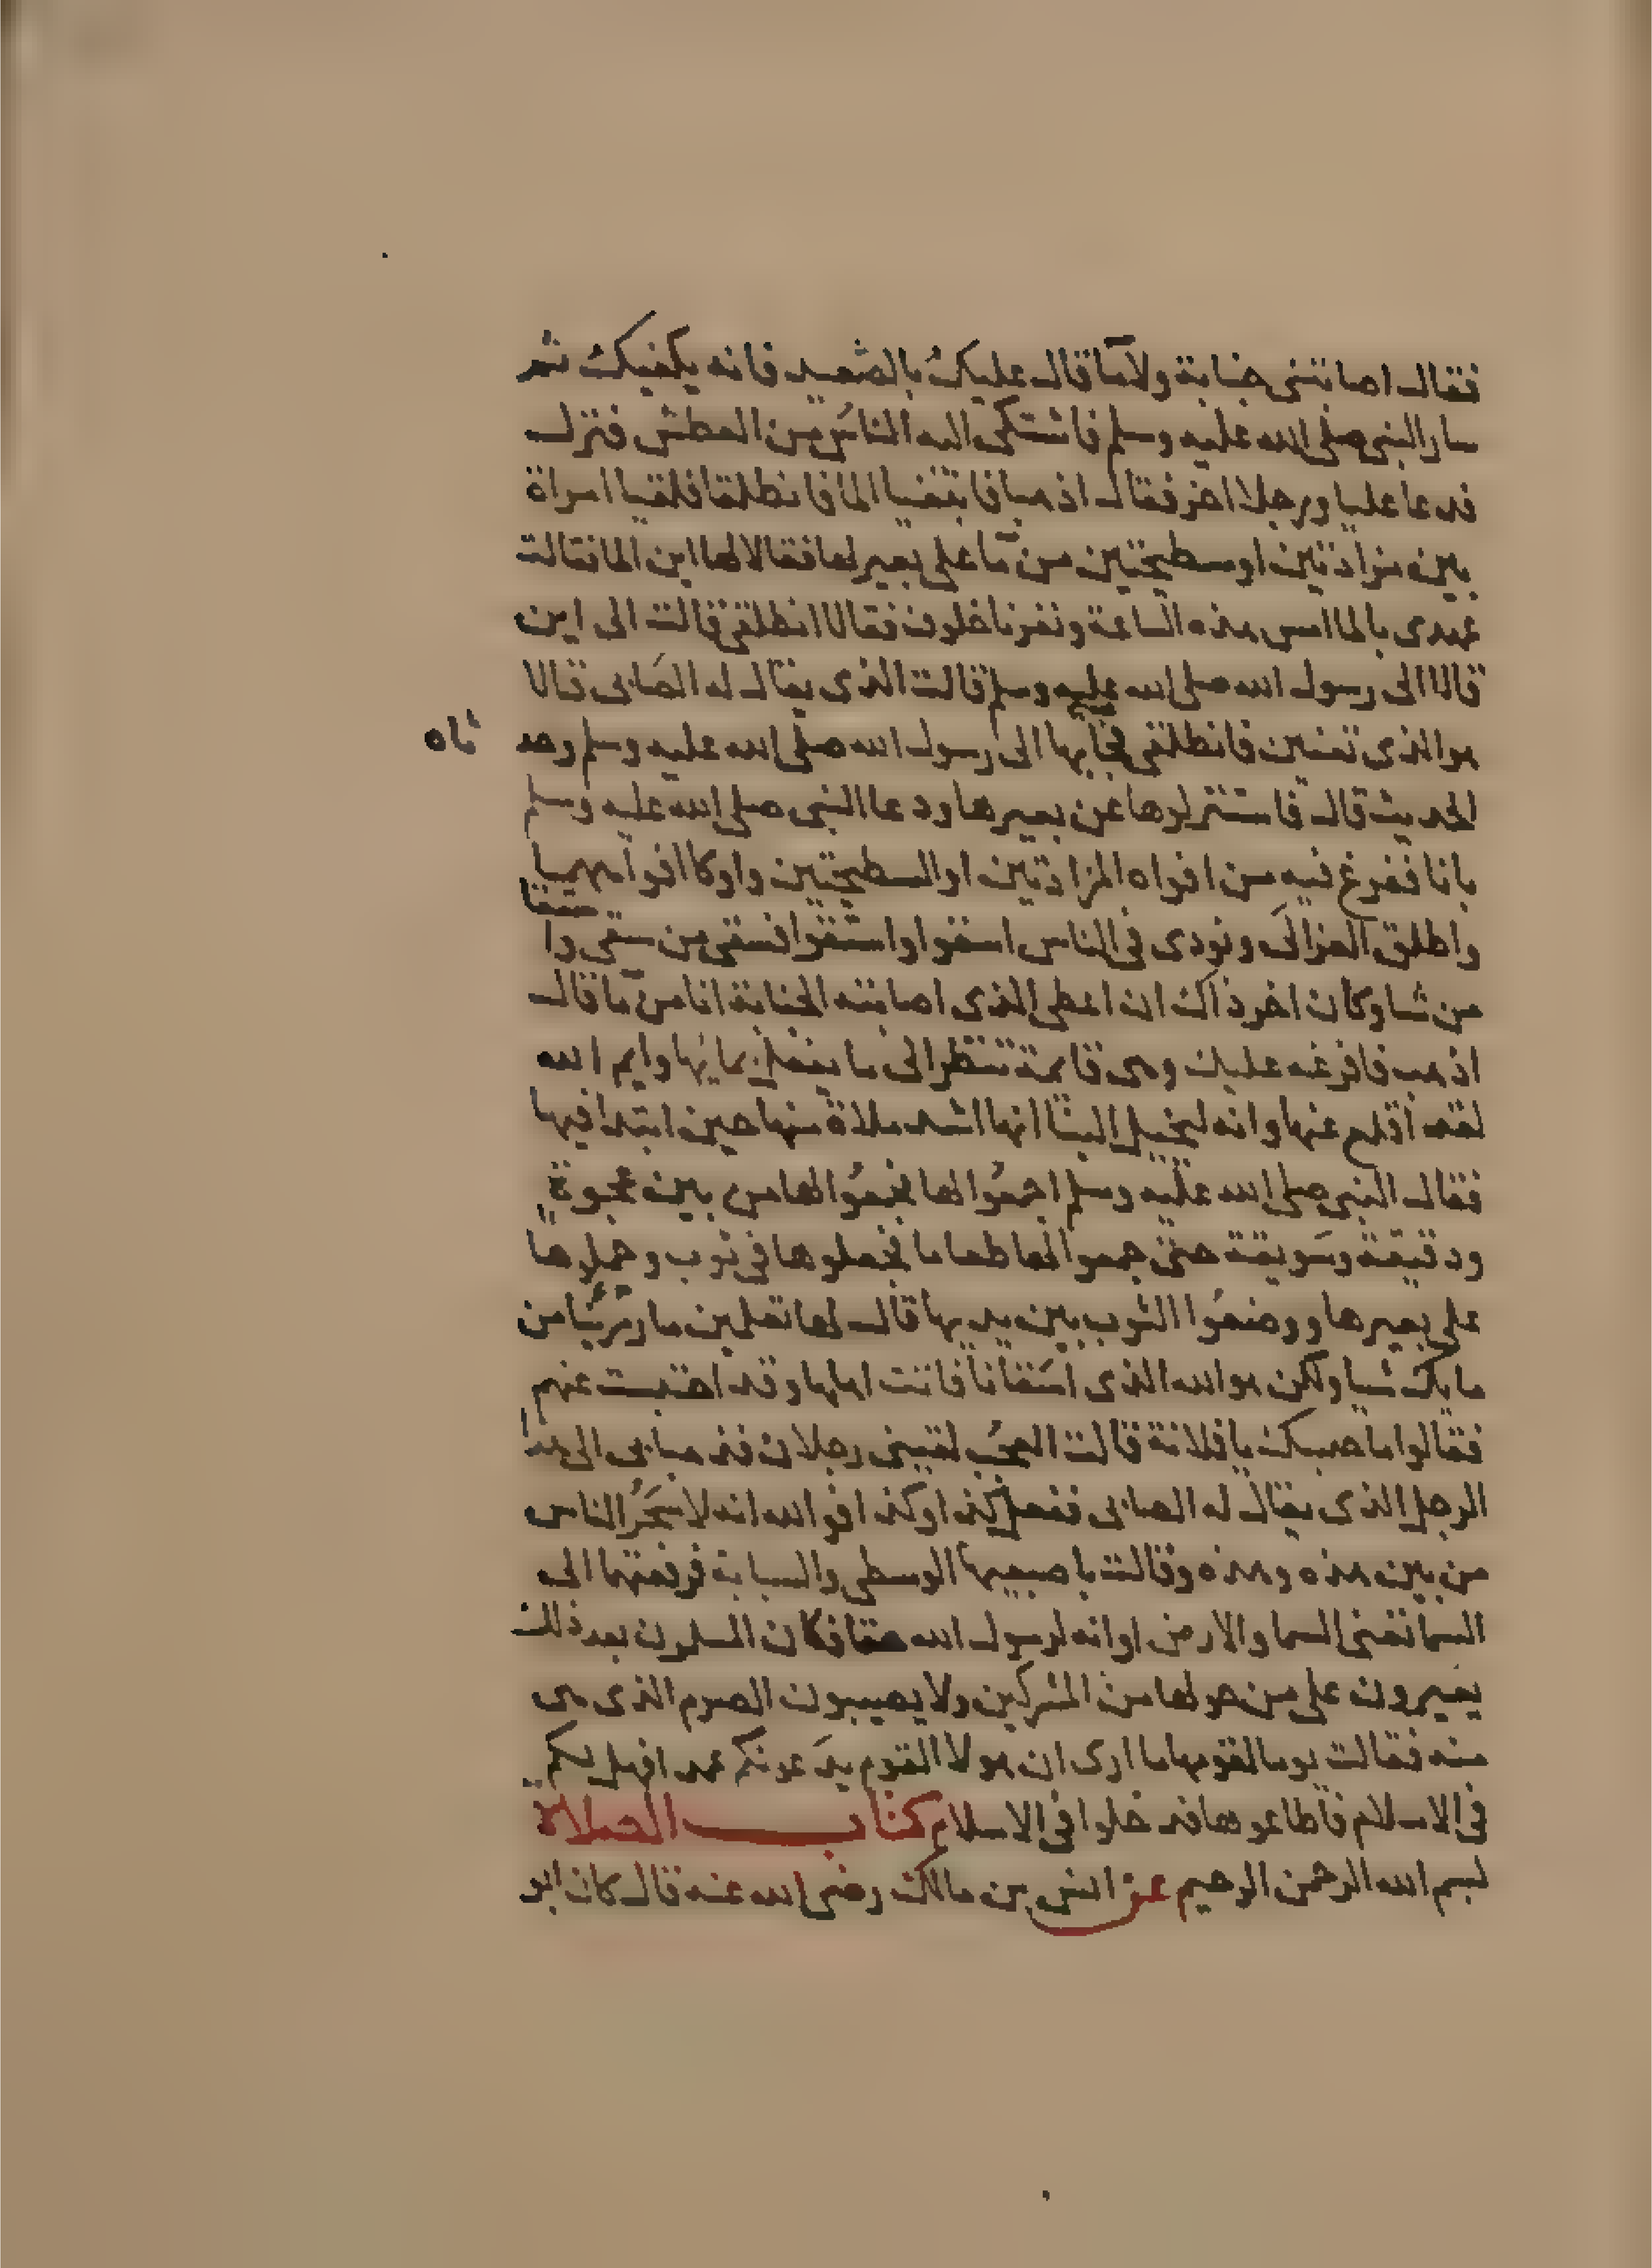 فقال اصابتنى جنابة ولا ما قال عليك بالصعيد فانه يكفيك ثم
سار النبى صلى الله عليه وسلم فاشتكى اليه الناس من العطش فنزل
فدعا عليا ورجلا اخر فقال اذهبا فابتغيا الما فانطلقا فلقيا امراة
بين مزادتين او سطيحتين من ما على بعير لها فقالا لها اين الما فقالت
عهدى بالما امس هذه الساعة ونفرنا خلوف فقالا انطلقى قالت الى اين
قالا الى رسول الله صلى الله عليه وسلم قالت الذى يقال له الصابى قالا
هو الذى تعنين فانطلقى فجا بها الى رسول الله صلى الله عليه وسلم وحد
ثاه
الحديث قال فاستنزلوها عن بعيرها ودعا النبى صلى الله عليه وسلم
بانا ففرغ فيه من افواه المزادتين او السطيحتين واوكا افواههما
واطلق العزالى ونودى فى الناس اسقوا واستقوا فسقى من سقى واستقا
من شا وكان اخر ذاك ان اعطى الذى اصابته الجنابة انا من ما قال
اذهب فافرغه عليك وهى قايمة تنظر الى ما يفعل بمايها وايم الله
لقد اقلع عنها وانه ليخيل الينا انها اشد ملاة منها حين ابتدا فيها
فقال النبى صلى الله عليه وسلم اجمعوا لها فجمعوا لها من بين عجوة
ودقيقة وسويقة حتى جمعوا لها طعاما فجعلوها فى ثوب وحملوها
على بعيرها ووضعوا الثوب بين يديها قال لها تعلمين ما رزينا من
مايك شيا ولكن هو الله الذى اسقانا فاتت اهلها وقد احتبست عنهم
فقالوا ما حبسك يا فلانة قالت العجب لقينى رجلان فذهبا بى الى هذا
الرجل الذى يقال له الصابى ففعل كذا وكذا فوالله انه لاسحر الناس
من بين هذه وهذه وقالت باصبعيها الوسطى والسبابة فرفعتهما الى
السما تعنى السما والارض او انه لرسول الله حقا فكان المسلمون بعد ذلك
يغيرون على من حولها من المشركين ولا يصيبون الصرم الذى هى
منه فقالت يوما لقومها ما ارى ان هولا القوم يدعونكم عمدا فهل لكم
فى الاسلام فاطاعوها فدخلوا فى الاسلام كتاب الصلاة
بسم الله الرحمن الرحيم عن انس بن مالك رضى الله عنه قال كان ابو